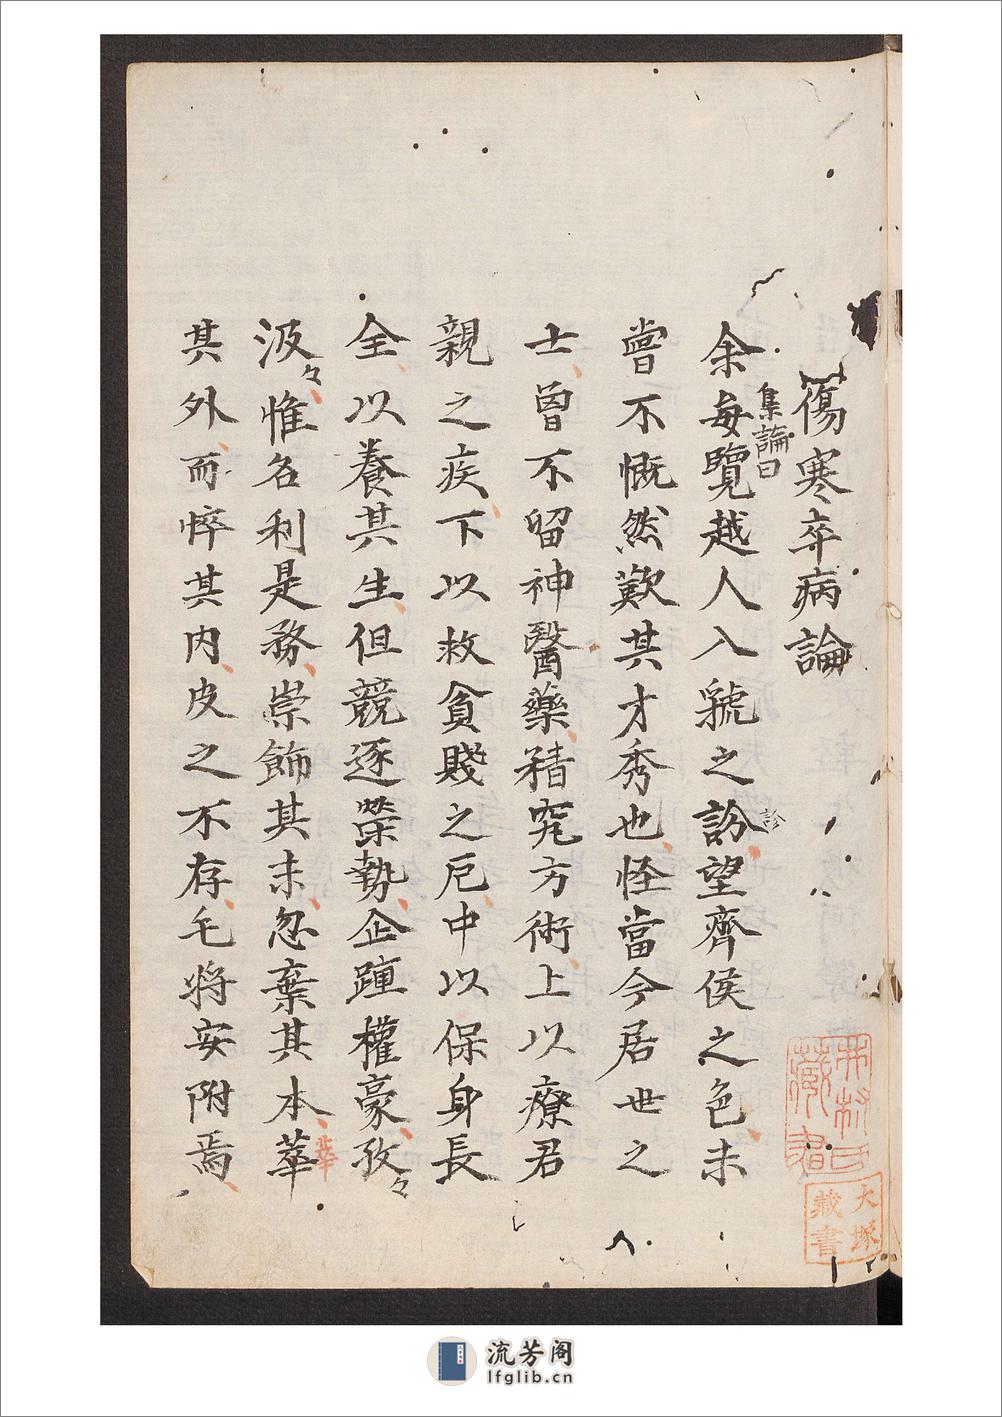 傷寒卒病論
集論曰
余每覽越人入虢之診望齊侯之色未
診
嘗不慨然歎其才秀也怪當今居世之
士曾不留神醫藥精究方術上以療君
親之疾下以救貧賤之厄中以保身長
全以養其生但競逐榮勢企踵權豪孜々
汲々惟名利是務崇飾其末忽棄其本華
華
其外而悴其内皮之不存毛將安附焉
藏書
大塚
藏書
流芳阁
lfglib.cn